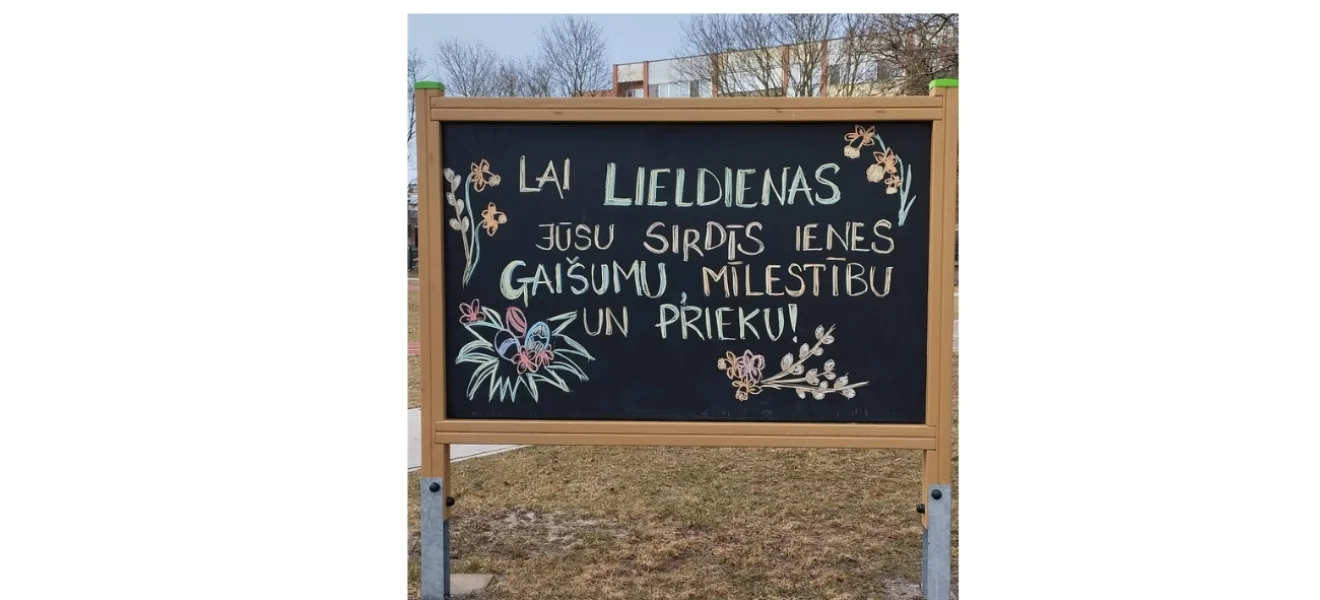 LAI LIELDIENAS
JŪSU SIRDĪS IENES
GAIŠUMU, MĪLESTĪBU
UN PRIEKU!